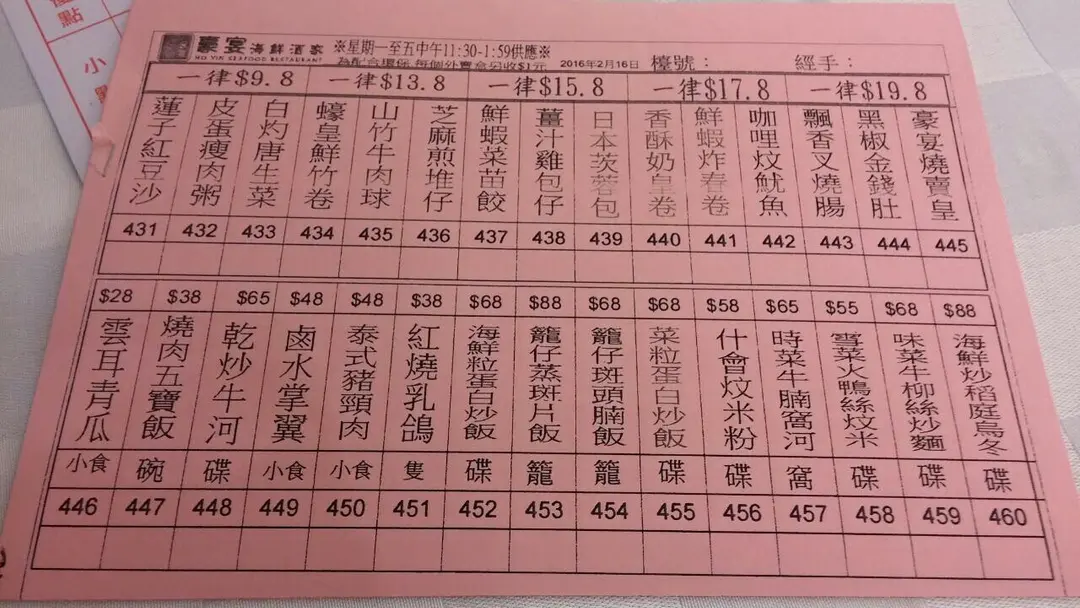 點
小
豪宴海鮮酒家 ※星期一至五中午11:30-1:59供應※
HO YIN SEAFOOD RESTAURANT
為配合環保,每個外賣盒另收$1元 2016年2月16日 檯號： 經手：
一律$9.8 一律$13.8 一律$15.8 一律$17.8 一律$19.8
蓮子紅豆沙 皮蛋瘦肉粥 白灼唐生菜 蠔皇鮮竹卷 山竹牛肉球 芝麻煎堆仔 鮮蝦菜苗餃 薑汁雞包仔 日本茨蓉包 香酥奶皇卷 鮮蝦炸春卷 咖哩炆魷魚 飄香叉燒腸 黑椒金錢肚 豪宴燒賣皇
431 432 433 434 435 436 437 438 439 440 441 442 443 444 445
$28 $38 $65 $48 $48 $38 $68 $88 $68 $68 $58 $65 $55 $68 $88
雲耳青瓜 燒肉五寶飯 乾炒牛河 鹵水掌翼 泰式豬頸肉 紅燒乳鴿 海鮮粒蛋白炒飯 籠仔蒸斑片飯 籠仔斑頭腩飯 菜粒蛋白炒飯 什會炆米粉 時菜牛腩窩河 雪菜火鴨絲炆米 味菜牛柳絲炒麵 海鮮炒稻庭烏冬
小食 碗 碟 小食 小食 隻 碟 籠 籠 碟 碟 窩 碟 碟 碟
446 447 448 449 450 451 452 453 454 455 456 457 458 459 460